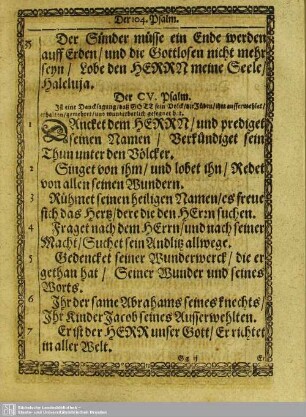 Der 104. Psalm.
35 Der Sünder müsse ein Ende werden
auff Erden/ und die Gottlosen nicht mehr
seyn/ Lobe den HERRN meine Seele/
Haleluja.
Der CV. Psalm.
Ist eine Dancksagung/ daß GOTT sein Volck/
erhalten/ und wunderbarlich gesegnet hat.
DAncket dem HERRN/ und prediget
seinen Namen/ Verkündiget sein
Thun unter den Völcker.
2 Singet von ihm/ und lobet ihn/ Redet
von allen seinen Wundern.
3 Rühmet seinen heiligen Namen/ es freue
sich das Hertz/ dere die den HErrn suchen.
4 Fraget nach dem HErrn/ und nach seiner
Macht/ Suchet sein Andlitz allwege.
5 Gedencket seiner Wunderwerck/ die er
gethan hat/ Seiner Wunder und seines
Worts.
6 Ihr der same Abrahams seines knechts/
Ihr Kinder Jacob seines Ausserwehlten.
7 Er ist der HERR unser Gott/ Er richtet
in aller Welt.
Gg ij